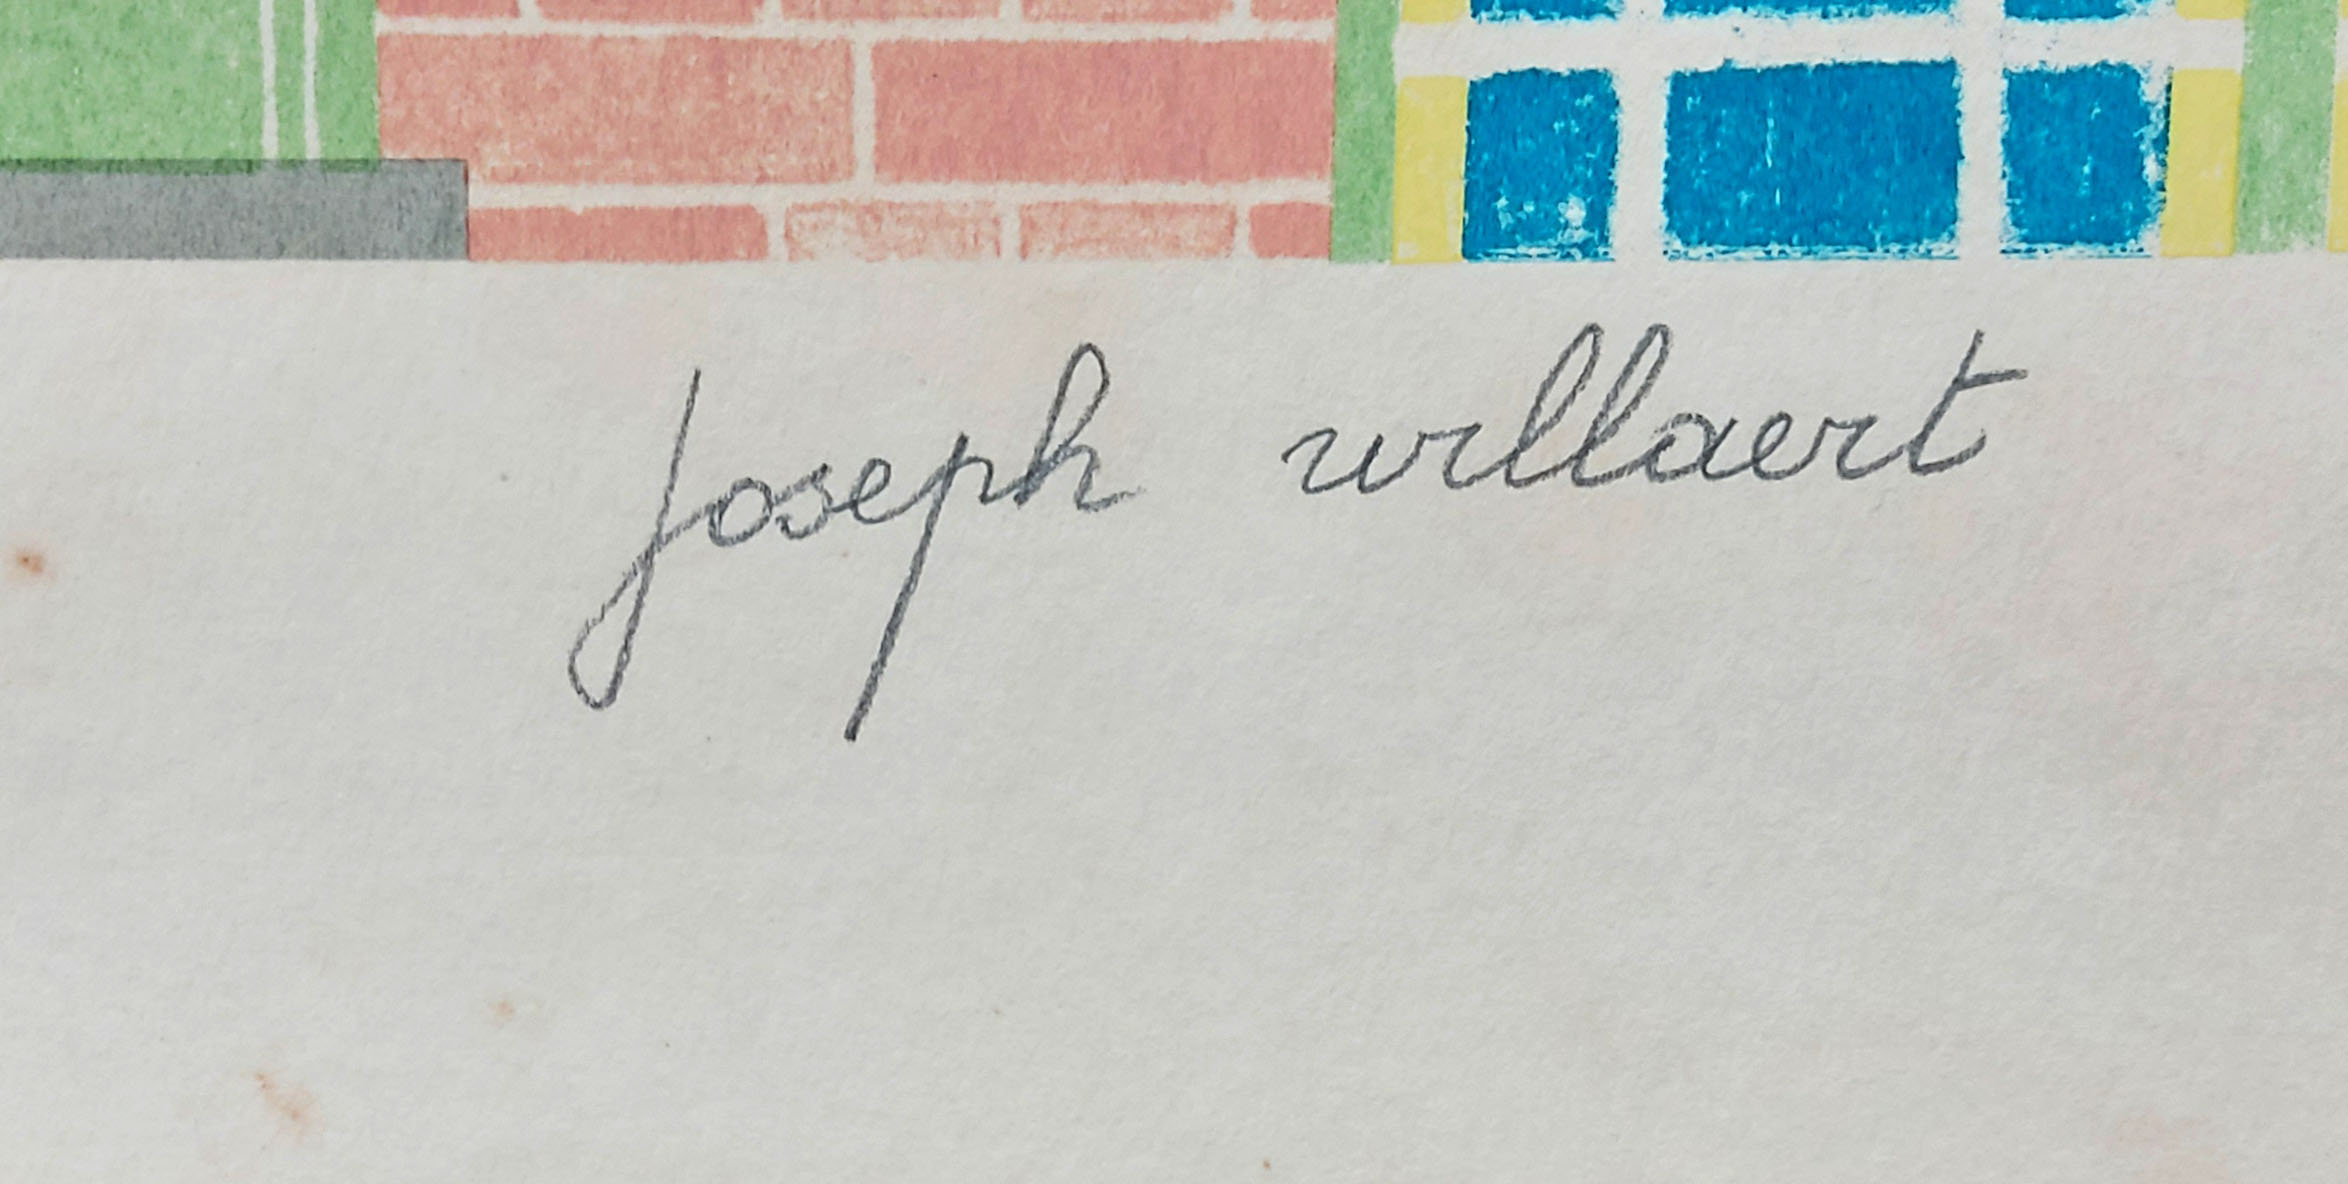 Joseph willaert